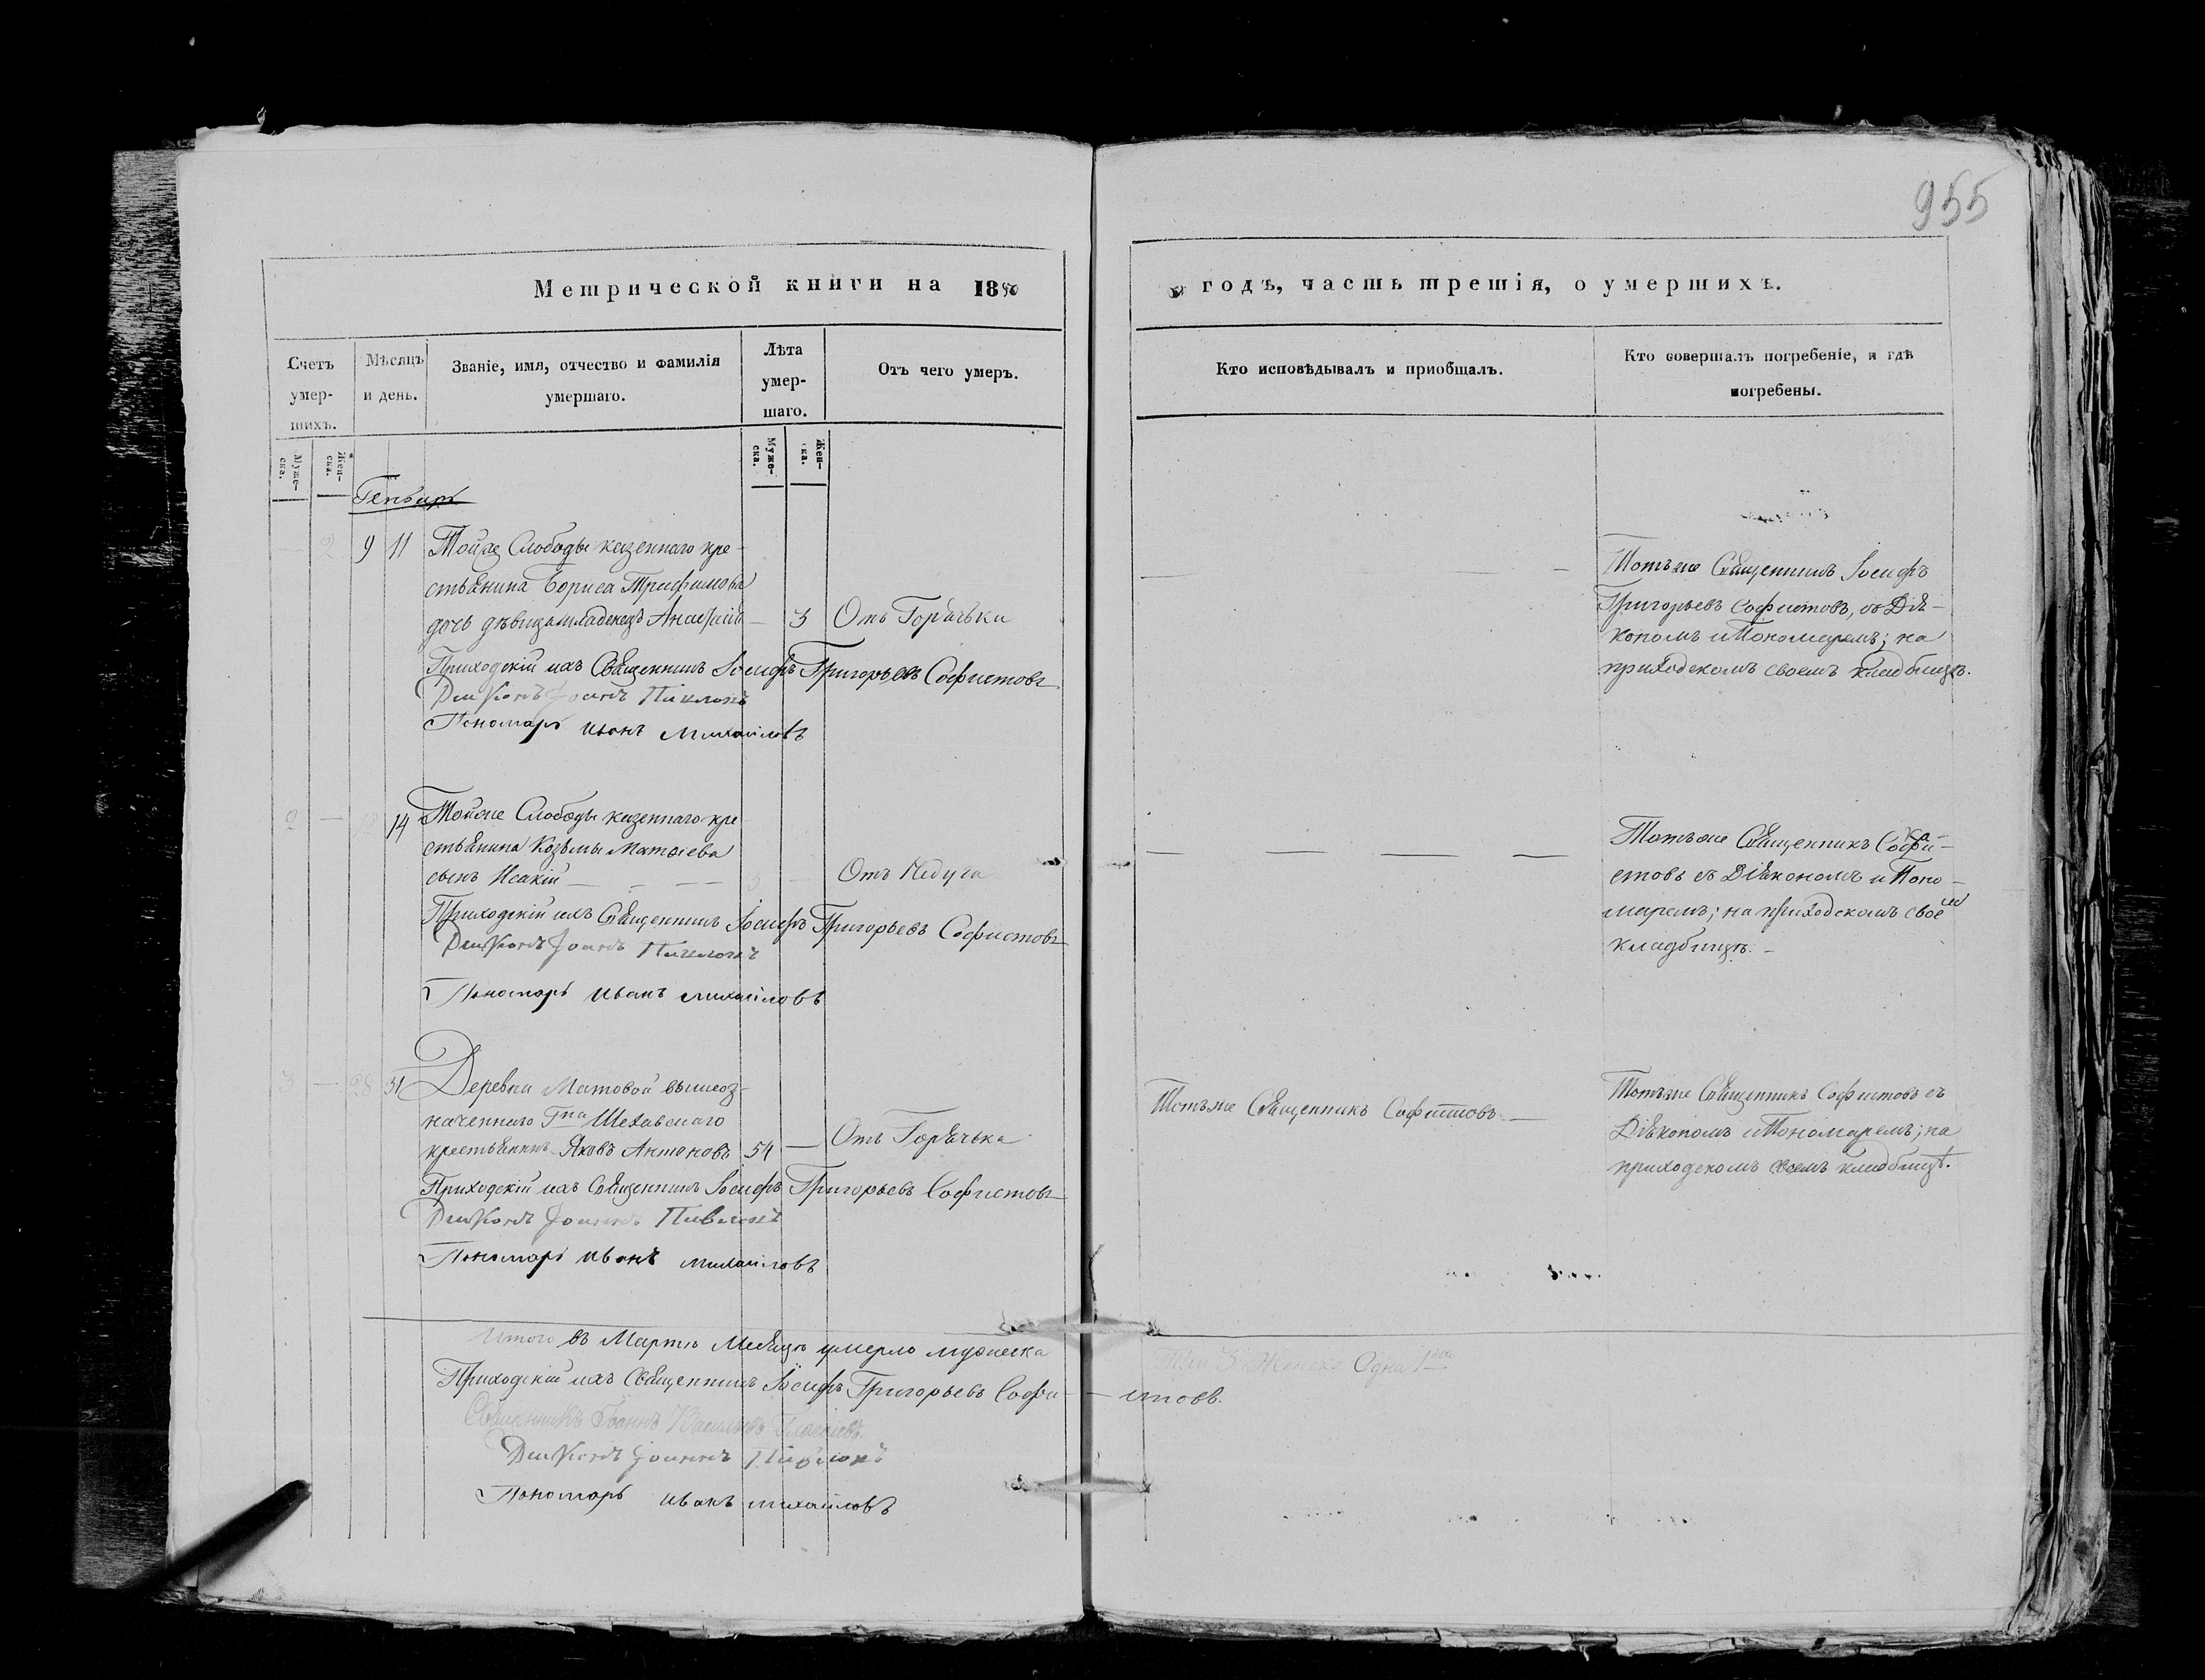 955
Метрической книги на 18
годъ, часть третія, о умершихъ.
Счетъ умер-шихъ.
Мѣсяцъ и день.
Званіе, имя, отчество и фамилія умершаго.
Лѣта умер-шаго.
Отъ чего умеръ.
Кто исповѣдывалъ и приобщалъ.
Кто совершалъ погребеніе, и гдѣ погребены.
Муже-ска.
Жен-ска.
Муже-ска.
Жен-ска.
Генварь
— 2 9 11 Тойже Слободы казеннаго кре-
стьянина Бориса Трифимова
дочь дѣвица младенецъ Анастасія — 3 Отъ Горячьки
Приходскій ихъ Священникъ Іосифъ Григорьевъ Софистовъ
Диаконъ Іоаннъ
Пономарь Иванъ Михайловъ
Тотъже Священникъ Іосифъ
Григорьевъ Софистовъ, съ Діа-
кономъ и Пономаремъ; на
приходскомъ своемъ кладбищѣ.
2 — 14 Тойже Слободы казеннаго кре
стьянина Козьмы Матѳіева
сынъ Исакій — Отъ Недуга
Приходскій ихъ Священникъ Іосифъ Григорьевъ Софистовъ
Диаконъ Іоаннъ
Пономарь Иванъ Михайловъ
Тотъже Священникъ Софи-
стовъ съ Діакономъ и Поно-
маремъ; на приходскомъ своемъ
кладбищѣ. —
3 — 28 31 Деревни Матовой вышеоз-
наченнаго Гна Шехавскаго
крестьянинъ Яковъ Антоновъ 54 — Отъ Горячька
Приходскій ихъ Священникъ Іосифъ Григорьевъ Софистовъ
Диаконъ Іоаннъ
Пономарь Иванъ Михайловъ
Тотъже Священникъ Софистовъ —
Тотъже Священникъ Софистовъ съ
Діакономъ и Пономаремъ; на
приходскомъ своемъ кладбищѣ.
Итого въ Мартѣ Месяцѣ умерло мужеска три 3 Женска Одна 1
Приходскій ихъ Священникъ Іосифъ Григорьевъ Софи-стовъ.
Священникъ Іоаннъ Васильевъ
Диаконъ Іоаннъ
Пономарь Иванъ Михайловъ